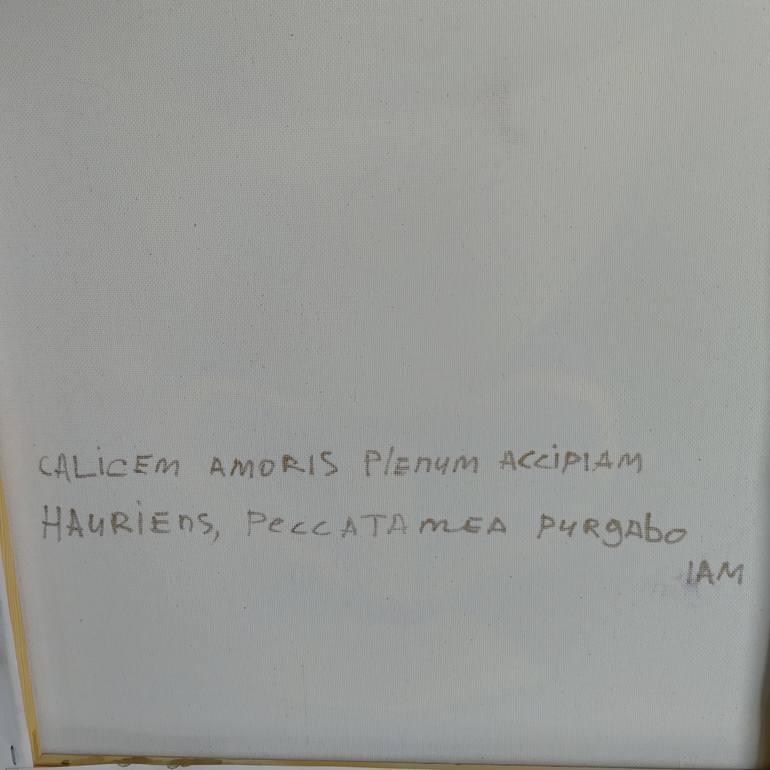 CALICEM AMORIS PLENUM ACCIPIAM
HAURIENS, PECCATA MEA PURGABO
IAM